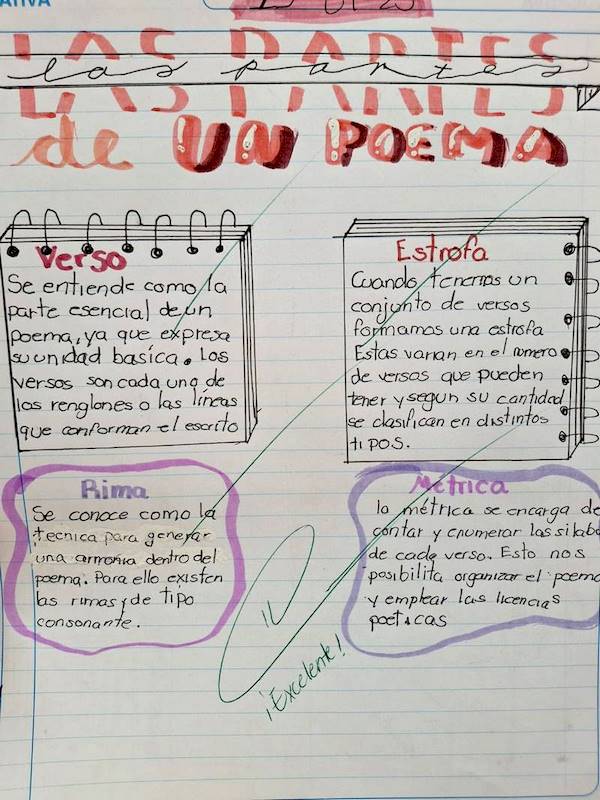 ATIVA
LAS PARTES
las partes
de UN POEMA
Verso
Se entiende como la
parte esencial de un
poema, ya que expresa
su unidad basica. Los
versos son cada uno de
los renglones o las líneas
que conforman el escrito
Estrofa
Cuando tenemos un
conjunto de versos
formamos una estrofa
Estas varian en el numero
de versos que pueden
tener y segun su cantidad
se clasifican en distintos
tipos.
Rima
Se conoce como la
tecnica para generar
una armonia dentro del
poema. Para ello existen
las rimas y de tipo
consonante.
Métrica
la métrica se encarga de
contar y enumerar las silaba
de cada verso. Esto nos
posibilita organizar el poema
y emplear las licencias
poeticas
¡Excelente!